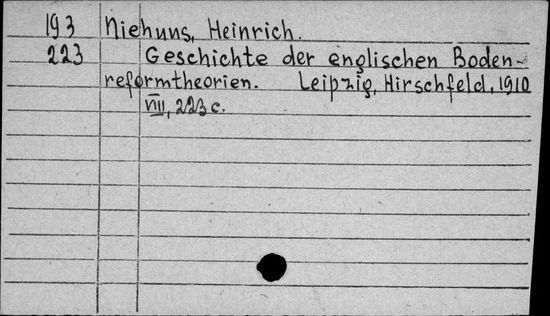 193 Niehuus, Heinrich.
223 Geschichte der englischen Boden-
reformtheorien. Leipzig, Hirschfeld, 1910
VIII, 223 c.